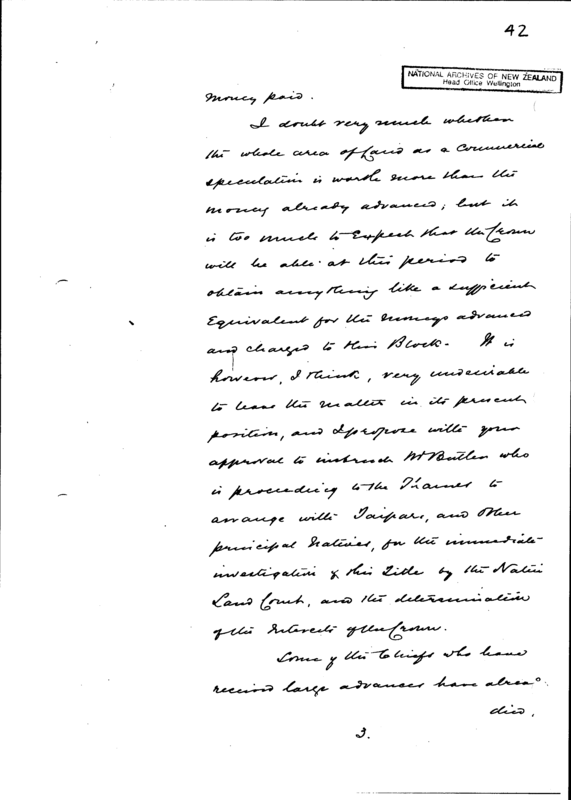 42
NATIONAL ARCHIVES OF NEW ZEALAND
Head Office Wellington
money paid.
I doubt very much whether
the whole area of land as a commercial
speculation is worth more than the
money already advanced; but it
is too much to expect that the Crown
will be able at this period to
obtain anything like a sufficient
Equivalent for the moneys advanced
and charged to this Block. It is
however, I think, very undesirable
to leave the matter in its present
position, and I propose with your
approval to instruct Mr Butler who
is proceeding to the Thames to
arrange with Taipari, and other
principal Natives, for the immediate
investigation of this Title by the Native
Land Court, and the determination
of the Interests of the Crown.
Some of the Chiefs who have
received large advances have alrea
died.
3.